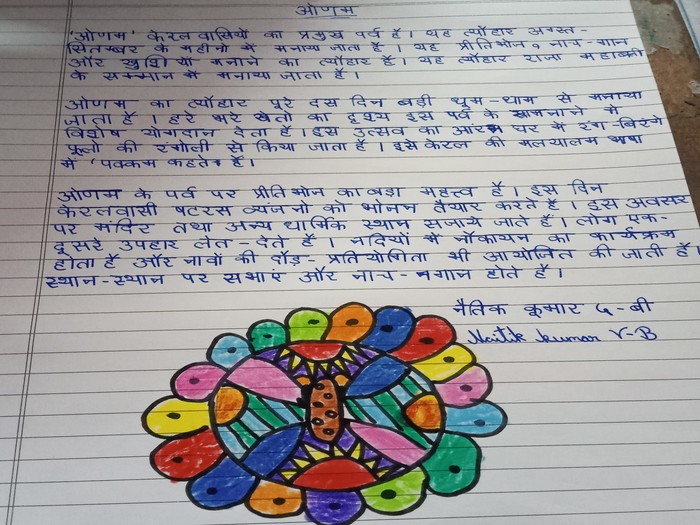 ओणम
'ओणम' केरलवासियों का प्रमुख पर्व है। यह त्यौहार अगस्त-
सितम्बर के महीनो में मनाया जाता है। यह प्रीतिभोज व नाच-गान
और खुशियाँ मनाने का त्यौहार है। यह त्यौहार राजा महाबली
के सम्मान में मनाया जाता है।
ओणम का त्यौहार पूरे दस दिन बड़ी धूम-धाम से मनाया
जाता है। हरे भरे खेतो का दृश्य इस पर्व के मनाने में
विशेष योगदान देता है। इस उत्सव का आरंभ घर में रंग-बिरंगे
फूलो की रंगोली से किया जाता है। इसे केरल की मलयालम भाषा
में 'पक्कम कहते है।
ओणम के पर्व पर प्रीतिभोज का बड़ा महत्त्व है। इस दिन
केरलवासी षटरस व्यंजनो को भोजन तैयार करते है। इस अवसर
पर मंदिर तथा अन्य धार्मिक स्थान सजाये जाते है। लोग एक-
दूसरे उपहार लेते-देते है। नदियों में नौकायन का कार्यक्रम
होता है और नावों की दौड़-प्रतियोगिता भी आयोजित की जाती है।
स्थान-स्थान पर सभाएं और नाच-गान होते है।
नैतिक कुमार ५-बी
Naitik kumar V-B